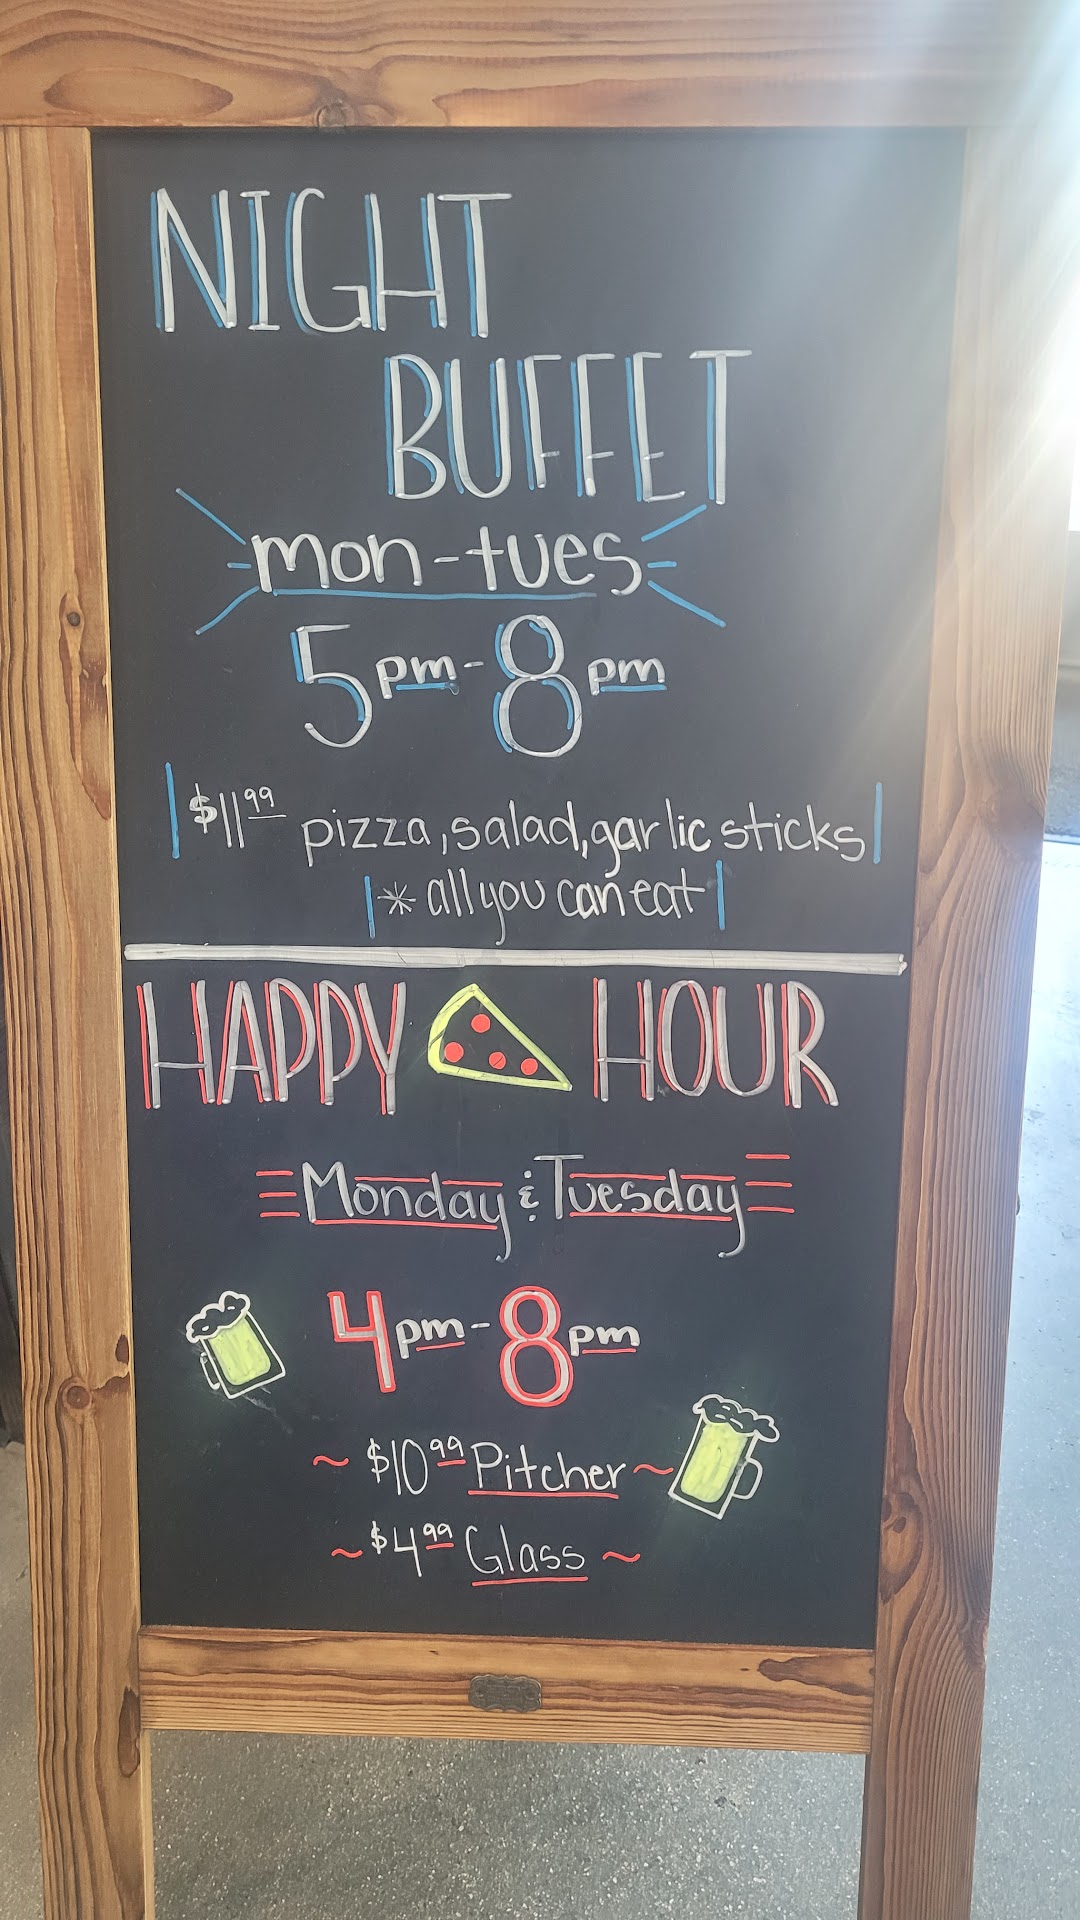 NIGHT
BUFFET
mon-tues
5pm-8pm
$11.99 pizza, salad, garlic sticks
* all you can eat
HAPPY HOUR
Monday & Tuesday
4pm-8pm
~ $10.99 Pitcher ~
~ $4.99 Glass ~